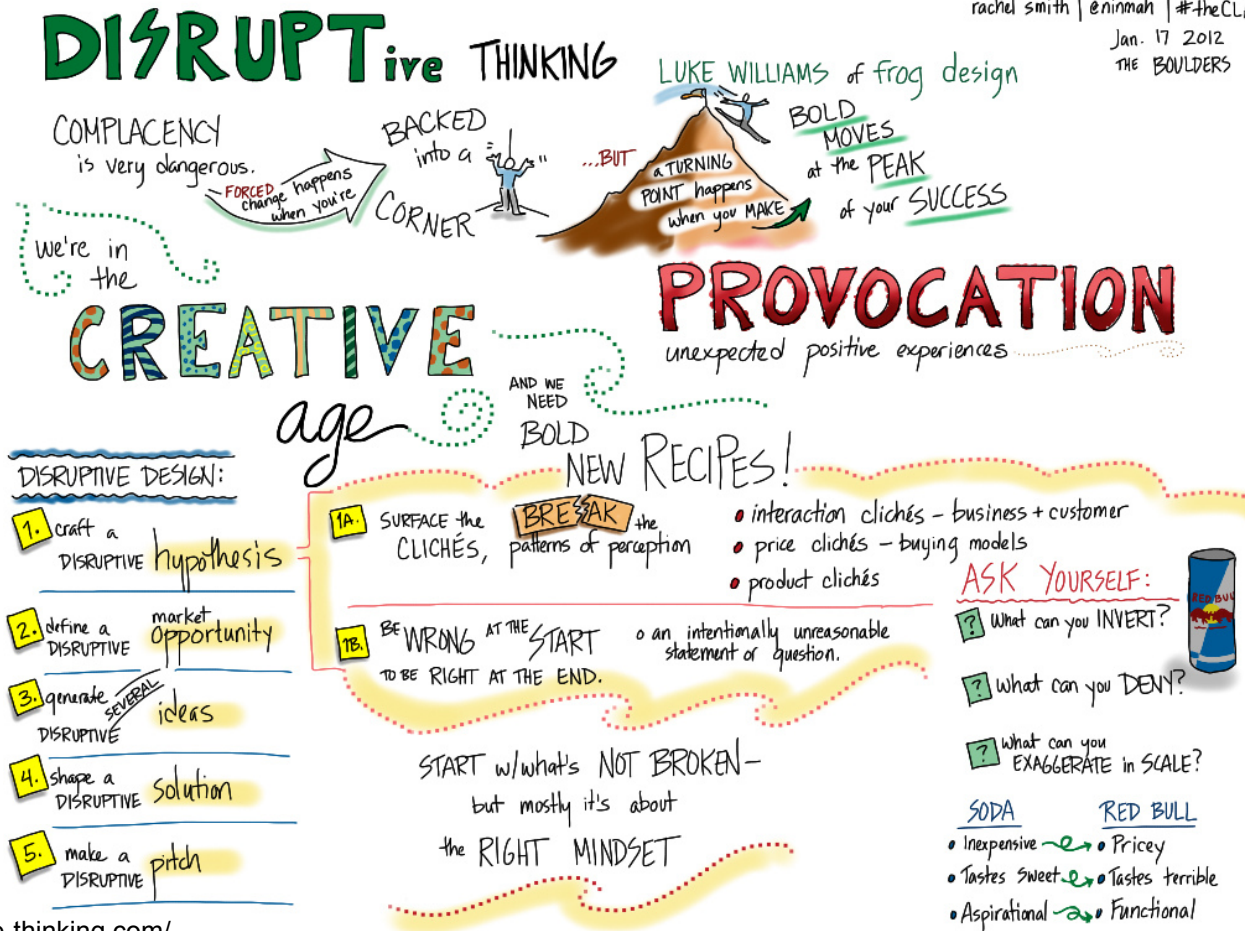 DISRUPTive THINKING
rachel smith | @ninmah | #theCL
Jan. 17 2012
THE BOULDERS
LUKE WILLIAMS of frog design
COMPLACENCY
is very dangerous.
FORCED
change happens
when you're
BACKED
into a
CORNER
...BUT
a TURNING
POINT happens
when you MAKE
BOLD
MOVES
at the PEAK
of your SUCCESS
we're in
the
CREATIVE
age
PROVOCATION
unexpected positive experiences
AND WE
NEED
BOLD
NEW RECIPES!
DISRUPTIVE DESIGN:
1. craft a
DISRUPTIVE hypothesis
2. define a
DISRUPTIVE market
opportunity
3. generate
SEVERAL
DISRUPTIVE ideas
4. shape a
DISRUPTIVE solution
5. make a
DISRUPTIVE pitch
1A. SURFACE the
CLICHÉS,
BREAK the
patterns of perception
• interaction clichés – business + customer
• price clichés – buying models
• product clichés
1B. BE WRONG AT THE START
TO BE RIGHT AT THE END.
o an intentionally unreasonable
statement or question.
START w/what's NOT BROKEN–
but mostly it's about
the RIGHT MINDSET
ASK YOURSELF:
? What can you INVERT?
? What can you DENY?
? What can you
EXAGGERATE in SCALE?
RED BULL
SODA RED BULL
• Inexpensive • Pricey
• Tastes Sweet • Tastes terrible
• Aspirational • Functional
-thinking.com/